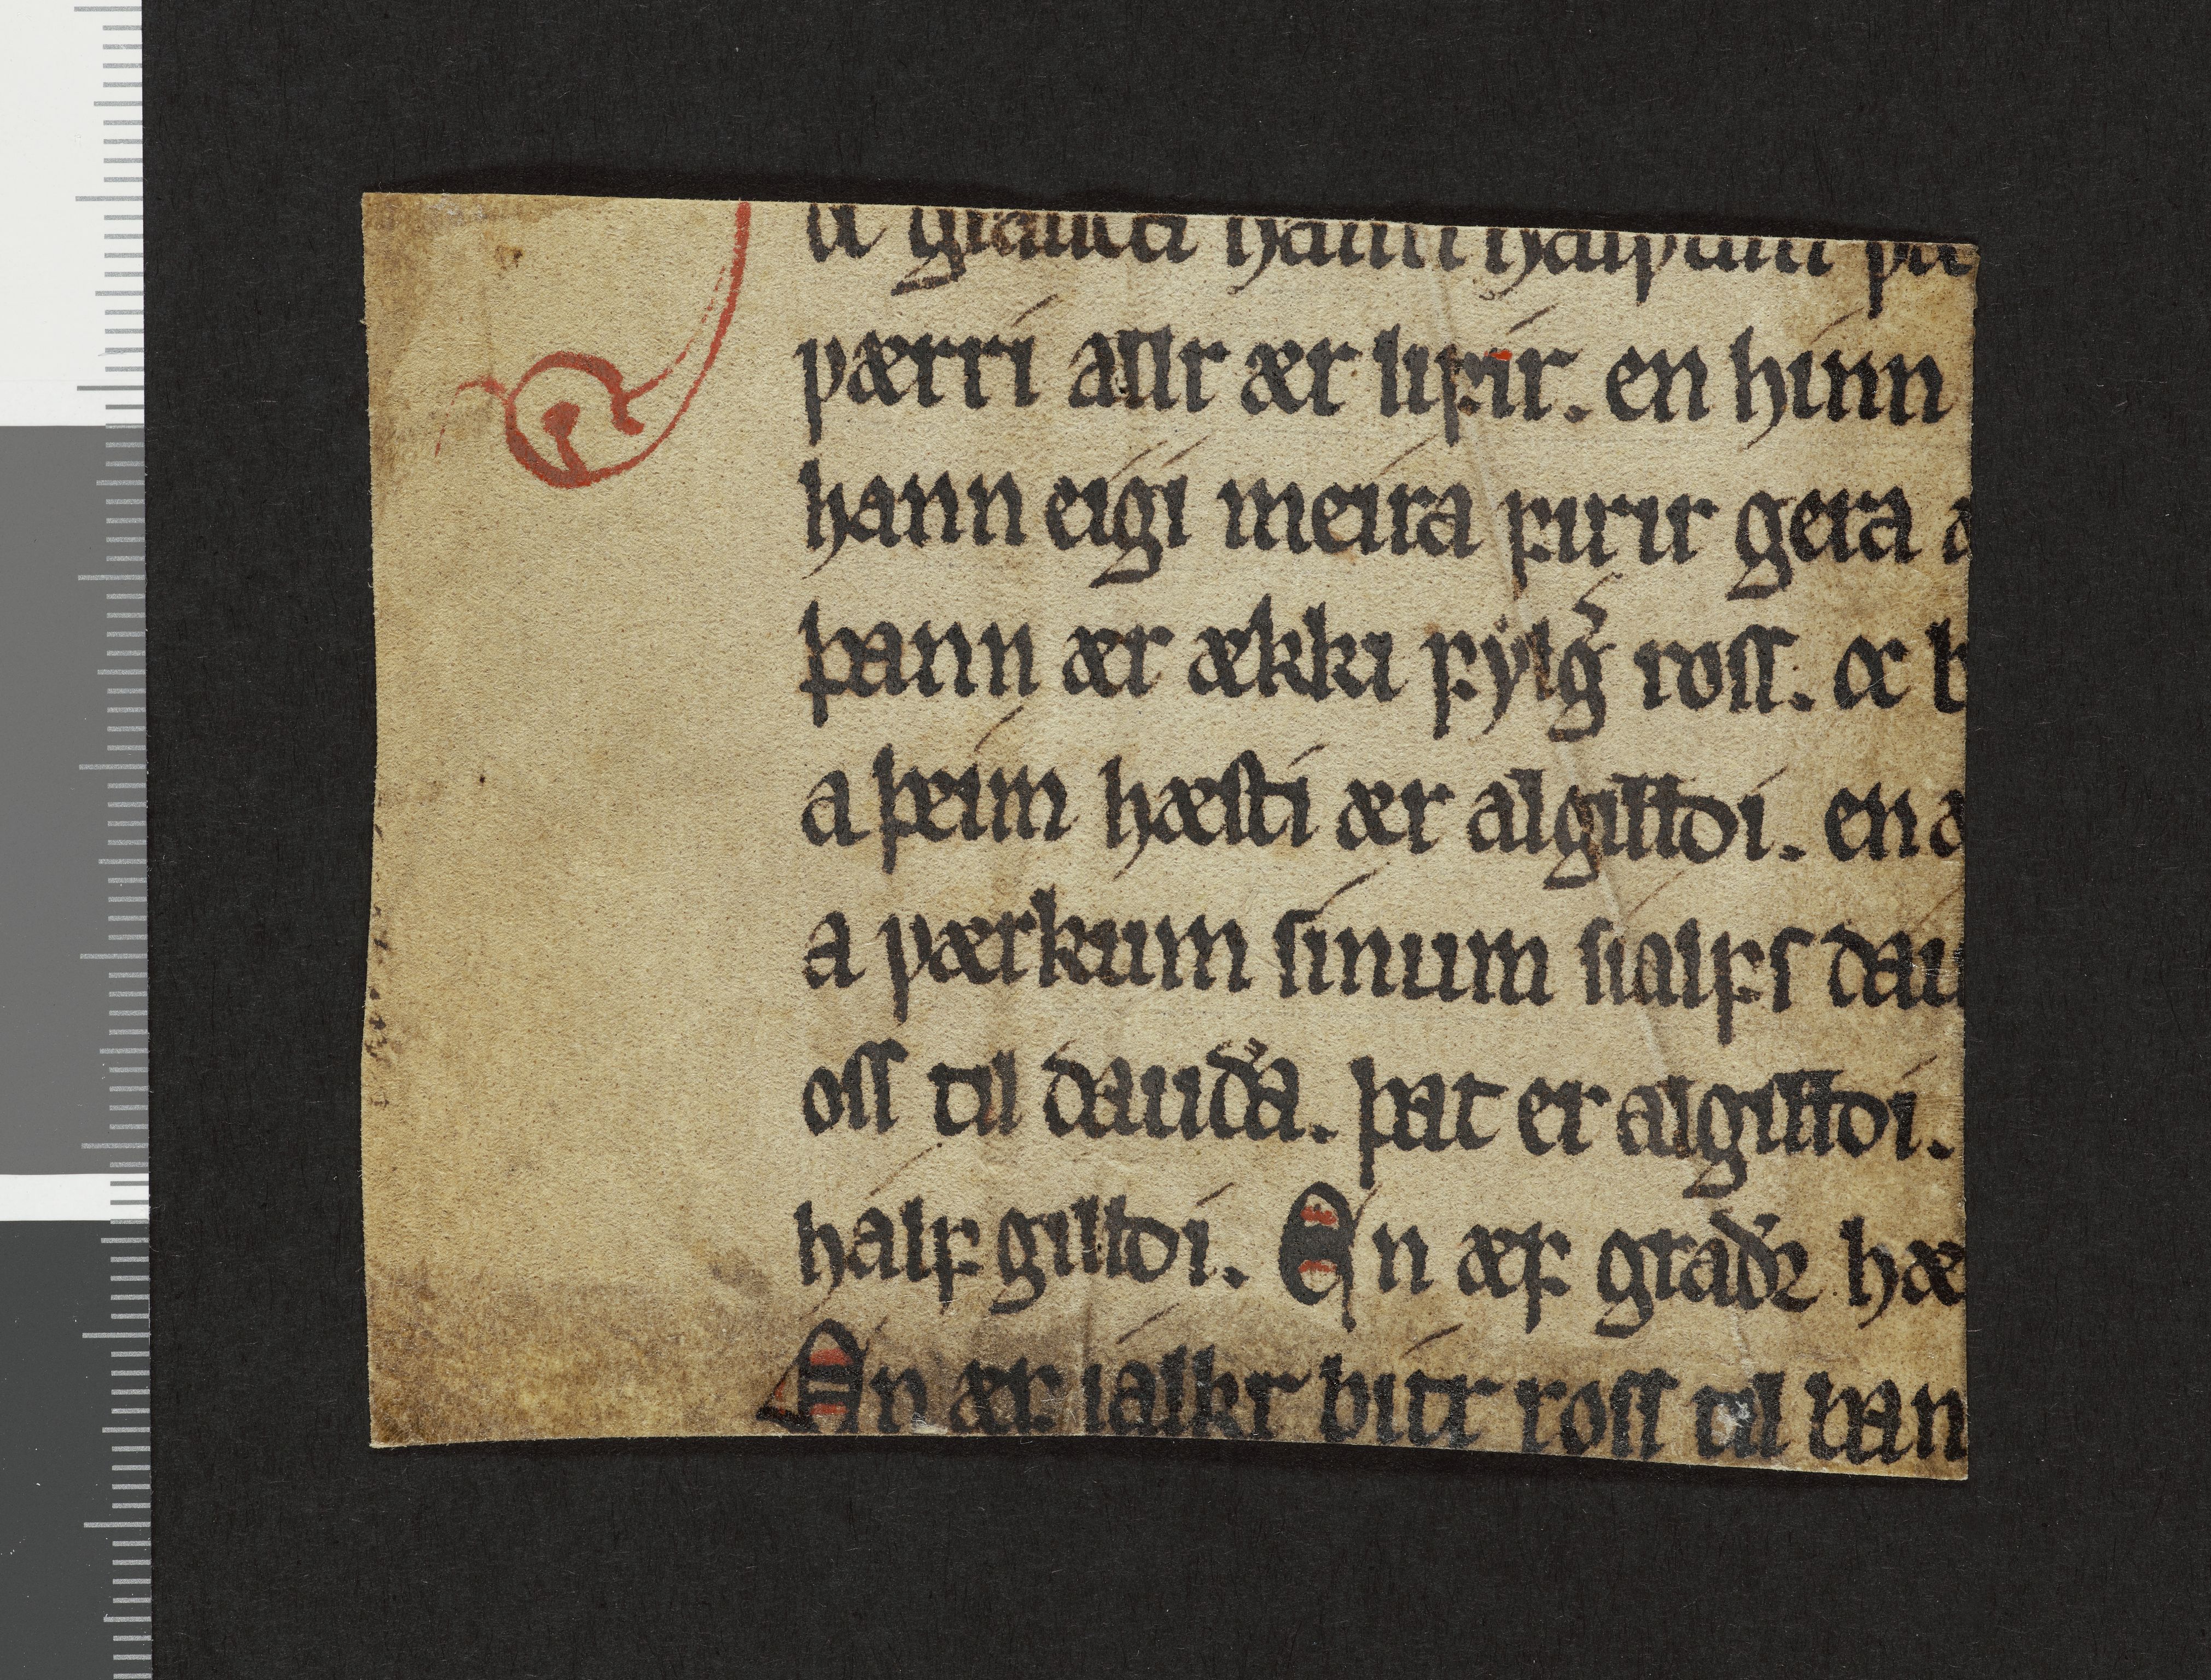 hann halfum
værri allr ær lifir. en hinn
hann eigi meira firir gera
þann ær ækki fylg͛ ross. oc b
a þæim hæsti ær algilldi. en a
a værkum sinum sialfs dau
oss til dauða. þat er algilldi.
half gilldi. En æf graðꝛ hæ
En æf ialkr bitr ross til ban